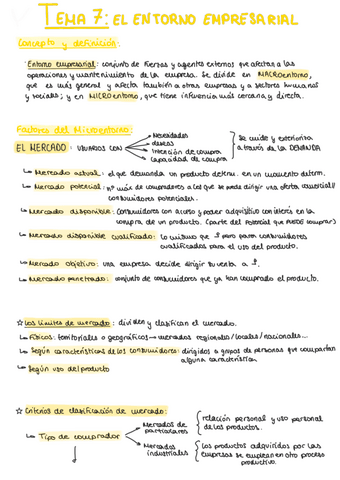 TEMA 7: EL ENTORNO EMPRESARIAL
Concepto y definición.
Entorno empresarial: conjunto de fuerzas y agentes externos que afectas a las
operaciones y mantenimiento de la empresa. Se divide en MACROentorno,
que es más general y afecta también a otras empresas y a sectores humanos
y sociales; y en MICROentorno, que tiene influencia más cercana y directa.
Factores del Microentorno:
EL MERCADO: USUARIOS CON
Necesidades
deseos
intención de compra
capacidad de compra
Se mide y exterioriza
a través de la DEMANDA
Mercado actual: el que demanda un producto determ. en un momento determ.
Mercado potencial: nº max de compradores a los que se puede dirigir una oferta comercial/
consumidores potenciales.
Mercado disponible: consumidores con acceso y poder adquisitivo con interés en la
compra de un producto. (parte del potencial que PUEDE comprar)
Mercado disponible cualificado: lo mismo que ↑ pero para consumidores
cualificados para el uso del producto.
Mercado objetivo: una empresa decide dirigir su venta a ↑.
Mercado penetrado: conjunto de consumidores que ya han comprado el producto.
☆ Los límites de mercado: dividen y clasifican el mercado.
Físicos: territoriales o geográficos → mercados regionales/locales/nacionales...
Según características de los consumidores: dirigidos a grupos de personas que compartan
alguna característica.
Según uso del producto
☆ Criterios de clasificación de mercado:
Tipo de comprador
Mercados de
particulares
relación personal y uso personal
de los productos.
Mercados
industriales
Los productos adquiridos por las
empresas se emplean en otro proceso
productivo.